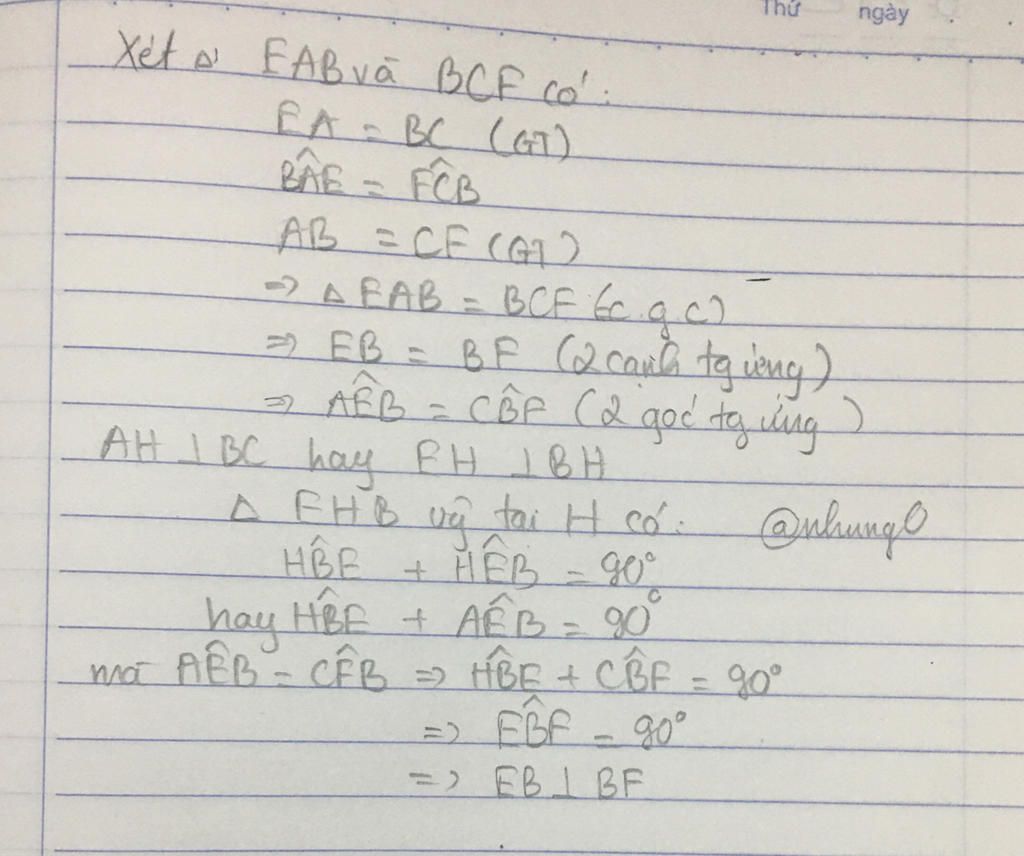 Thứ ngày
Xét Δ EAB và BCF có:
EA = BC (GT)
BÂE = FĈB
AB = CF (GT)
=> Δ EAB = BCF (c.g c)
=> EB = BF (2 cạnh tg ứng)
=> AÊB = CB̂F (2 góc tg ứng)
AH ⊥ BC hay EH ⊥ BH
Δ EHB vg tại H có: @nhung0
HB̂E + HÊB = 90°
hay HB̂E + AÊB = 90°
mà AÊB = CF̂B => HB̂E + CB̂F = 90°
=> EB̂F = 90°
=> EB ⊥ BF